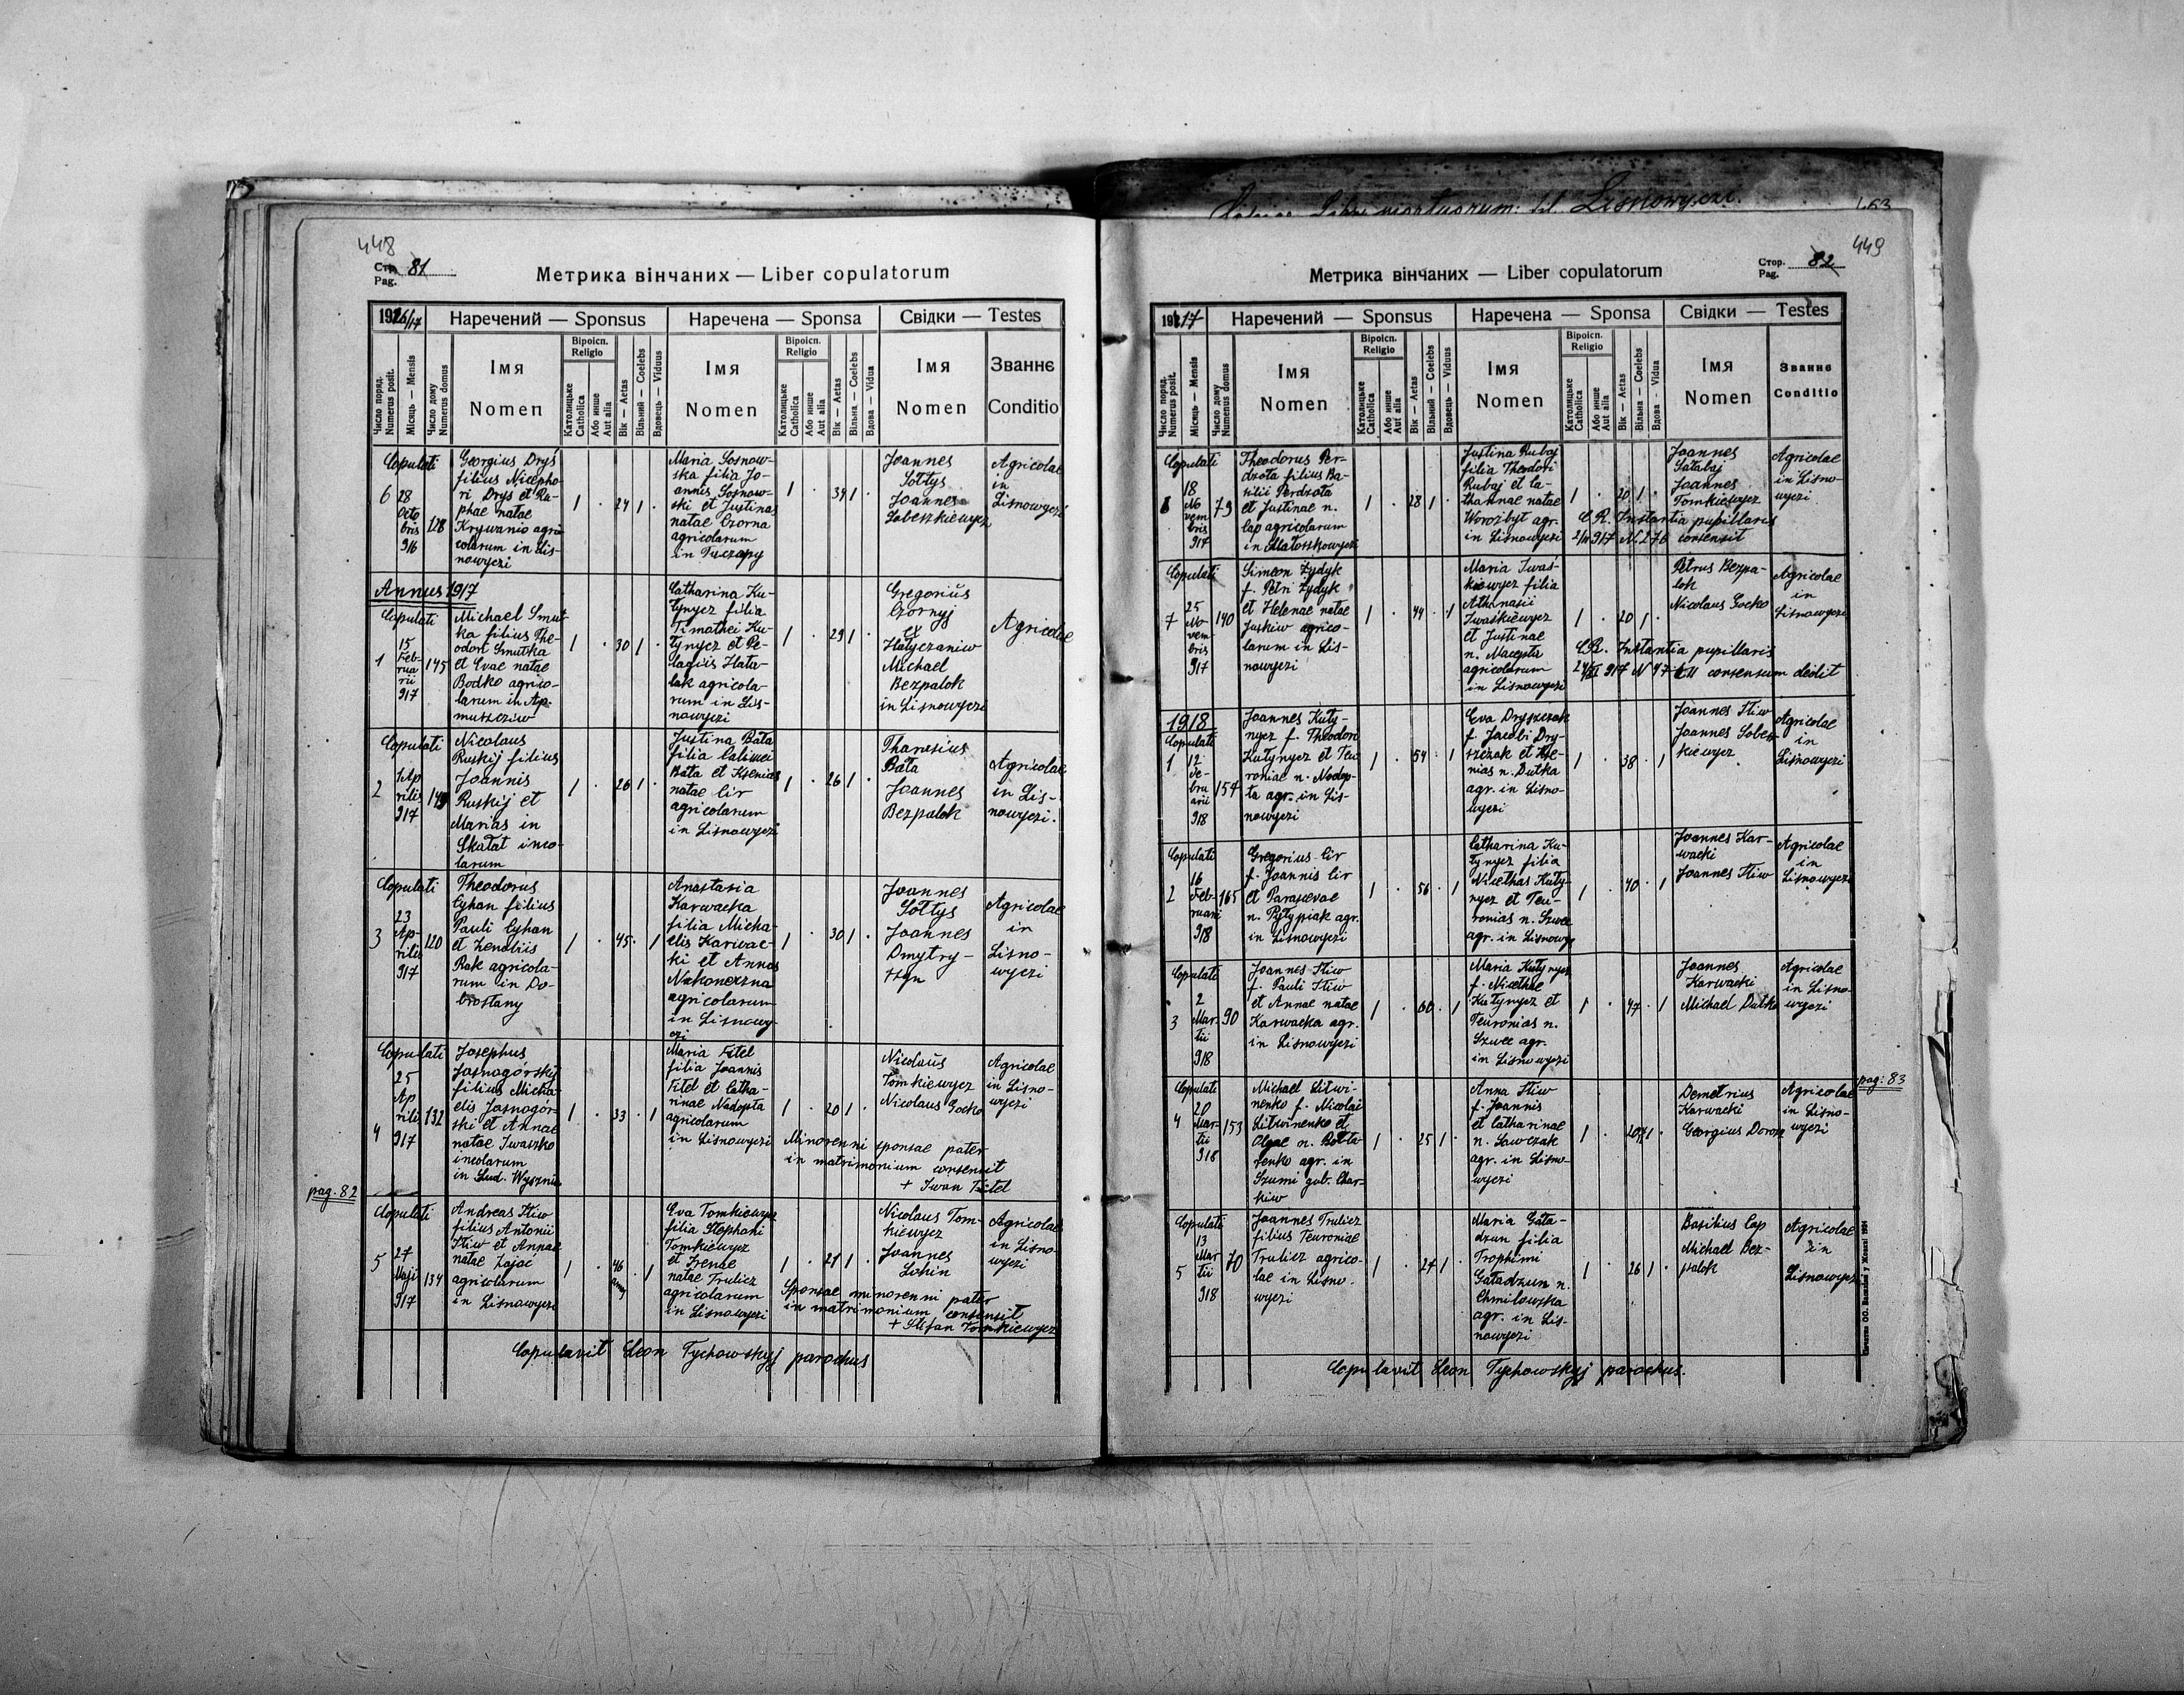 448
Стр. 81
Pag.
Метрика вінчаних — Liber copulatorum
1916/17
Наречений — Sponsus
Наречена — Sponsa
Свідки — Testes
Число поряд.
Numerus posit.
Місяць — Mensis
Число дому
Numerus domus
Імя
Nomen
Віроісп.
Religio
Католицьке
Catholica
Або инше
Aut alia
Вік — Aetas
Вільний — Coelebs
Вдовець — Viduus
Імя
Nomen
Віроісп.
Religio
Католицьке
Catholica
Або инше
Aut alia
Вік — Aetas
Вільна — Coelebs
Вдова — Vidua
Імя
Nomen
Званнє
Conditio
Copulati
6
28
Octo
bris
916
128
Georgius Dryś
filius Nicepho-
ri Drys et Ra-
phae natae
Krywanio agri-
colarum in Lis-
nowyczi
1 . 24 1 .
Maria Sosnow-
ska filia Jo-
annis Sosnow-
ski et Justinas
natae Czorna
agricolarum
in Tuczapy
1 . 34 1 .
Joannes
Sołtys
Joannes
Sobeszkiewycz
Agricolae
in
Lisnowyczi
Annus 1917
Copulati
1
15
Feb-
rua
rii
917
145
Michael Smut-
ka filius The-
odori Smutka
et Evae natae
Bodko agrico-
larum in
1 . 30 1 .
Catharina Ku-
tynycz filia
Timothei Ku-
tynycz et Pe-
lagiis Hata-
lak agricola-
rum in Lis-
nowyczi
1 . 29 1 .
Gregorius
Czornyj
ex
Hatyczaniw
Michael
Bezpalok
in Lisnowyczi
Agricolae
Copulati
2
Ap
rilis
917
Nicolaus
Ruskij filius
Joannis
Ruskij et
Marias in
Skałat inco-
larum
1 . 26 1 .
Justina Bata
filia
Bata et Ksenias
natae Cir
agricolarum
in Lisnowyczi
1 . 26 1 .
Thanasius
Bata
Joannes
Bezpalok
Agricolae
in Lis-
nowyczi.
Copulati
3
23
Ap-
rilis
917
120
Theodorus
Cyhan filius
Pauli Cyhan
et Zenobiis
Rak agricola-
rum in Do-
brostany
1 . 45 . 1
Anastasia
Karwacka
filia Micha-
elis Karwac-
ki et Annas
Nakoneczna
agricolarum
in Lisnowy-
czi
1 . 30 1 .
Joannes
Sołtys
Joannes
Dmytry-
szyn
Agricolae
in
Lisno-
wyczi
Copulati
4
25
Ap
rilis
917
132
Josephus
Jasnogórskij
filius Micha-
elis Jasnogór-
ski et Annae
natae Iwaszko
incolarum
in Sud. Wysznia
1 . 33 . 1
Maria Fitel
filia Joannis
Fitel et Catha-
rinae Nadopta
agricolarum
in Lisnowyczi
1 . 20 1 .
Nicolaus
Tomkiewycz
Nicolaus Gocko
Agricolae
in Lisno-
wyczi
Minorenni sponsae pater
in matrimonium consensit
+ Iwan Fitel
pag. 82
Copulati
5
27
Maji
917
134
Andreas Stiw
filius Antonii
Stiw et Annae
natae Zając
agricolarum
in Lisnowyczi
1 . 46 . 1
Eva Tomkiewycz
filia Stephani
Tomkiewycz
et Irenae
natae Trulicz
agricolarum
in Lisnowyczi
1 . 21 1 .
Nicolaus Tom-
kiewycz
Joannes
Lohin
Agricolae
in Lisno-
wyczi
Sponsae minorenni pater
in matrimonium consensit
+ Stefan Tomkiewycz
Copulavit Leon Tychowskyj parochus
Lisnowyczi.
449
Стор. 82
Pag.
Метрика вінчаних — Liber copulatorum
1917
Наречений — Sponsus
Наречена — Sponsa
Свідки — Testes
Число поряд.
Numerus posit.
Місяць — Mensis
Число дому
Numerus domus
Імя
Nomen
Віроісп.
Religio
Католицьке
Catholica
Або инше
Aut alia
Вік — Aetas
Вільний — Coelebs
Вдовець — Viduus
Імя
Nomen
Віроісп.
Religio
Католицьке
Catholica
Або инше
Aut alia
Вік — Aetas
Вільна — Coelebs
Вдова — Vidua
Імя
Nomen
Званнє
Conditio
Copulati
6
18
No
vem
bris
917
79
Theodorus Per-
dzota filius Ba-
silii Perdzota
et Justinae n.
Cap agricolarum
in Małoszkowyczi
1 . 28 1 .
Justina Rubaj
filia Theodori
Rubaj et Ca-
tharinae natae
Worożbyt agr.
in Lisnowyczi
1 . 20 1 .
Joannes
Satabaj
Joannes
Tomkiewycz
Agricolae
in Lisno-
wyczi
C.R. Instantia pupillaris
917 N. 276 consensit
Copulati
7
25
No-
vem
bris
917
140
Simeon Zydyk
f. Petri Zydyk
et Helenae natae
Juskiw agrico-
larum in Lis-
nowyczi
1 . 44 . 1
Maria Iwaś-
kiewycz filia
Athanasii
Iwaśkiewycz
et Justinae
n. Macepta
agricolarum
in Lisnowyczi
1 . 20 1 .
Petrus Bezpa-
lok
Nicolaus Gocko
Agricolae
in
Lisnowyczi
C.R. Instantia pupillaris
917 consensum dedit
1918
Copulati
1
12
Fe-
bru
arii
918
154
Joannes Kuty-
nycz f. Theodori
Kutynycz et Teu
roniae n. Nadop-
ta agr. in Lis-
nowyczi
1 . 54 . 1
Eva Dryszczak
f. Jacobi Dry-
szczak et Kse-
nias n. Dutka
agr. in Lisno-
wyczi
1 . 38 . 1
Joannes Stiw
Joannes Sobesz-
kiewycz
Agricolae
in
Lisnowyczi
Copulati
2
16
Feb-
ruarii
918
165
Gregorius Cir
f. Joannis Cir
et Parascevae
n. Pytypiak agr.
in Lisnowyczi
1 . 56 . 1
Catharina Ku-
tynycz filia
Nicethas Kuty-
nycz et Teu-
ronias n. Szwec
agr. in Lisnowy
1 . 40 . 1
Joannes Kar-
wacki
Joannes Stiw
Agricolae
in
Lisnowyczi
Copulati
3
2
Mar-
tii
918
90
Joannes Stiw
f. Pauli Stiw
et Annae natae
Karwacka agr.
in Lisnowyczi
1 . 60 . 1
Maria Kutynycz
f. Nicethae
Kutynycz et
Teuronias n.
Szwec agr.
in Lisnowyczi
1 . 47 . 1
Joannes
Karwacki
Michael Dutka
Agricolae
in Lisno-
wyczi
pag: 83
Copulati
4
20
Mar-
tii
918
153
Michael Litwi-
nenko f. Nicolai
Litwinenko et
Olgae n.
fenko agr. in
Szumi gub. Char-
kiw
1 . 25 1 .
Anna Stiw
f. Joannis
et Catharinae
n. Sawczak
agr. in Lisno-
wyczi
1 . 1 .
Demetrius
Karwacki
Georgius Dorosz
Agricolae
in Lisno-
wyczi
Copulati
5
13
Mar-
tii
918
70
Joannes Trulicz
filius Teuroniae
Trulicz agrico-
lae in Lisno-
wyczi
1 . 24 1 .
Maria Gata-
dzun filia
Trophimi
Gatadzun n.
Chmilowska
agr. in Lis-
nowyczi
1 . 26 1 .
Basilius Cap
Michael Bez-
palok
Agricolae
in
Lisnowyczi
Copulavit Leon Tychowskyj parochus.